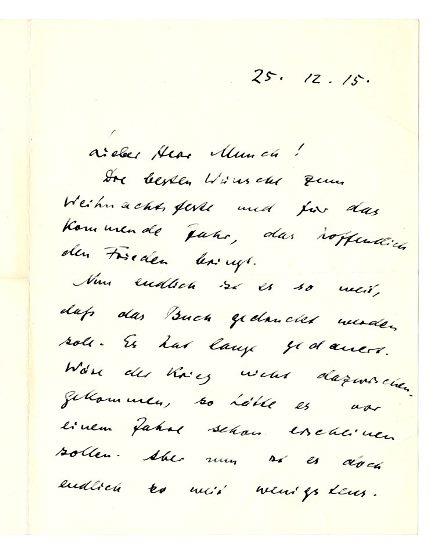 25. 12. 15.
Lieber Herr Munch!
Die besten Wünsche zum
Weihnachtsfeste und für das
kommende Jahr, das hoffentlich
den Frieden bringt.
Nun endlich ist es so weit,
daß das Buch gedruckt werden
soll. Es hat lange gedauert.
Wäre der Krieg nicht dazwischen-
gekommen, so hätte es vor
einem Jahre schon erscheinen
sollen. Aber nun ist es doch
endlich so weit wenigstens.